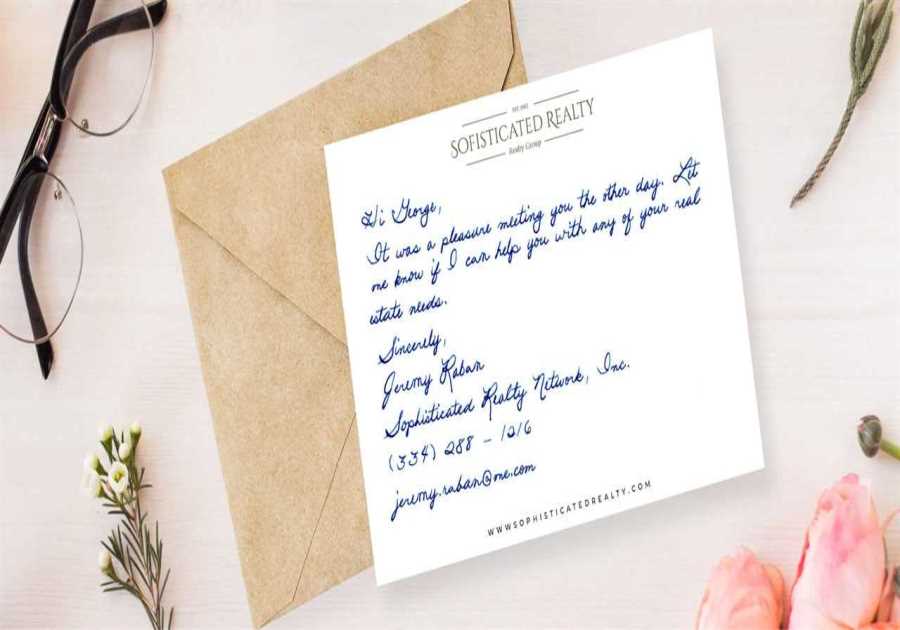 EST. 1982
SOFISTICATED REALTY
Realty Group
Hi George,
It was a pleasure meeting you the other day. Let
me know if I can help you with any of your real
estate needs.
Sincerely,
Jeremy Raban
Sophisticated Realty Network, Inc.
(334) 288 - 1216
jeremy.raban@me.com
WWWSOPHISTICATEDREALTY.COM